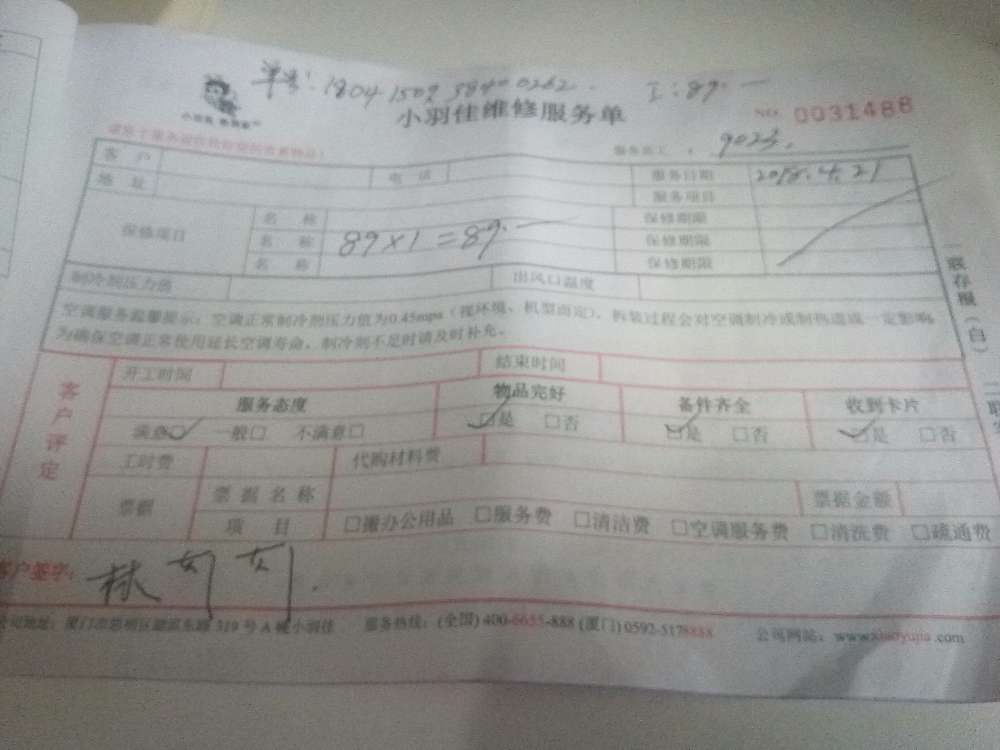 单号：1804 1509 5840 0262. 工：89.一
小羽佳维修服务单 NO. 0031488
服务员工： 9023.
客 户 电 话 服务日期 2018.4.21
地 址 服务项目
保修项目 名 称 89×1=89.一 保修期限
名 称 保修期限
名 称 保修期限
制冷剂压力值 出风口温度
空调服务温馨提示：空调正常制冷剂压力值为0.45mpa（视环境、机型而定），拆装过程会对空调制冷或制热造成一定影响
为确保空调正常使用延长空调寿命，制冷剂不足时请及时补充。
一联存根（白）
客户评定
开工时间 结束时间
服务态度 物品完好 备件齐全 收到卡片
满意☑ 一般□ 不满意□ ☑是 □否 ☑是 □否 ☑是 □否
工时费 代购材料费
票据 票 据 名 称 票据金额
项 目 □搬办公用品 □服务费 □清洁费 □空调服务费 □清洗费 □疏通费
客户签字：林
公司地址：厦门市思明区湖滨东路 319 号 A 幢小羽佳 服务热线：(全国) 400-6655-888 (厦门) 0592-5178888 公司网站：www.xiaoyujia.com